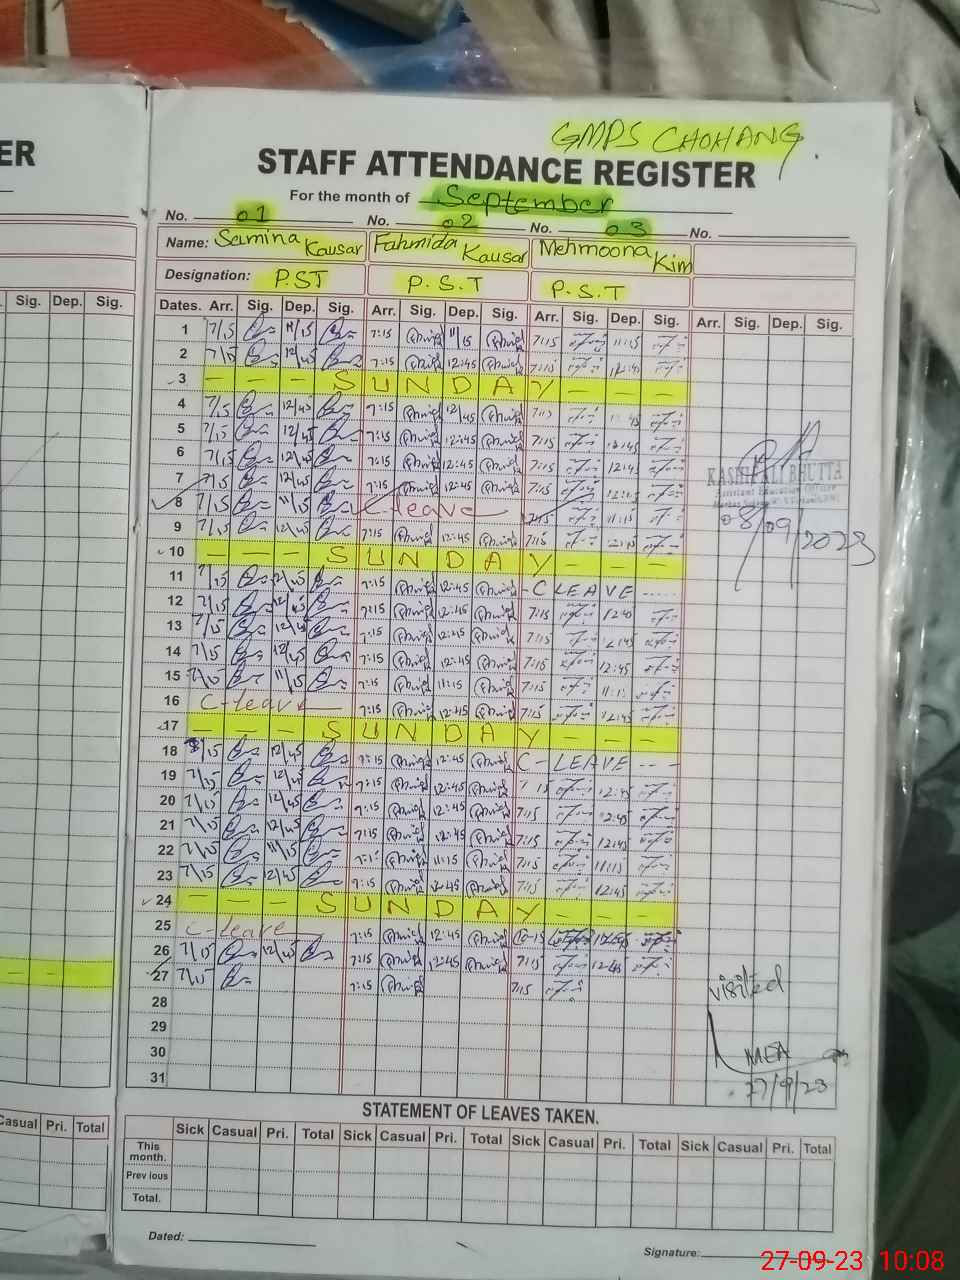 ER
GMPS CHOHANG.
STAFF ATTENDANCE REGISTER
For the month of September
No. 01 No. 02 No. 03 No.
Name: Samina Kausar Fahmida Kausar Mehmoona Kim
Designation: P.ST P.S.T P.S.T
Sig. Dep. Sig. Dates. Arr. Sig. Dep. Sig. Arr. Sig. Dep. Sig. Arr. Sig. Dep. Sig. Arr. Sig. Dep. Sig.
1 7/15 11/15 7:15 11/15 7:15 11:15
2 7/15 12/45 7:15 12:45 7:15 12:45
3 - - - SUNDAY - - -
4 7/15 12/45 7:15 12/45 7:15 12:45
5 7/15 12/45 7:15 12:45 7:15 12:45
6 7/15 12/45 7:15 12:45 7:15 12:45
7 7/15 12/45 7:15 12:45 7:15
KASHIF ALI BHUTTA
Assistant Education Officer
8 7/15 11/15 C-leave 7:15 11:15
08/09/2023
9 7/15 12/45 7:15 12:45 7:15 12:45
10 - - - SUNDAY - - -
11 7/15 12/45 7:15 12:45 - C LEAVE .....
12 7/15 12/45 7:15 12:45 7:15 12:45
13 7/15 12/45 7:15 12:45 7:15 12:45
14 7/15 12/45 7:15 12:45 7:15 12:45
15 7/15 11/15 7:15 11:15 7:15 11:15
16 C-leave 7:15 12:45 7:15 12:45
17 - - - SUNDAY - - -
18 7/15 12/45 7:15 12:45 C- LEAVE - - -
19 7/15 12/45 7:15 12:45 7:15 12:45
20 7/15 12/45 7:15 12:45 7:15 12:45
21 7/15 12/45 7:15 12:45 7:15 12:45
22 7/15 11/15 7:15 11:15 7:15 11:15
23 7/15 12/45 7:15 12:45 7:15 12:45
24 - - - SUNDAY - - -
25 C-leave 7:15 12:45
26 7/15 12/45 7:15 12:45 7:15 12:45
27 7/15 7:15 7:15
visited
28
29
30
MEA
31
27/9/23
STATEMENT OF LEAVES TAKEN.
Casual Pri. Total Sick Casual Pri. Total Sick Casual Pri. Total Sick Casual Pri. Total Sick Casual Pri. Total
This month.
Previous
Total.
Dated: Signature:
27-09-23 10:08